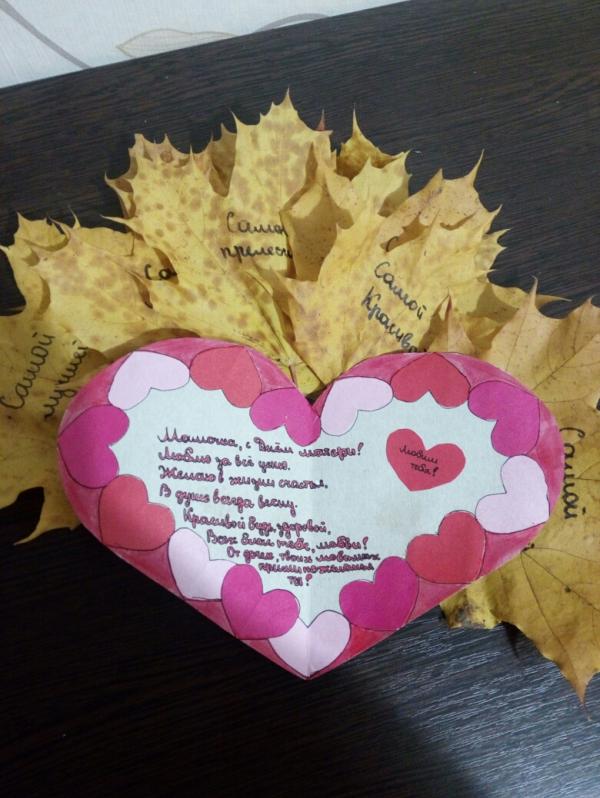 Самой
прелест
Са
Самой
Красиво
Самой
лучшей
Самой
Мамочка, с Днём матери!
Люблю за всё тебя.
Желаю в жизни счастья,
В душе всегда весну.
Красивой будь, здоровой,
Всех благ тебе, любви!
От дочек твоих
прими пожелания
ты!
Любим
тебя!